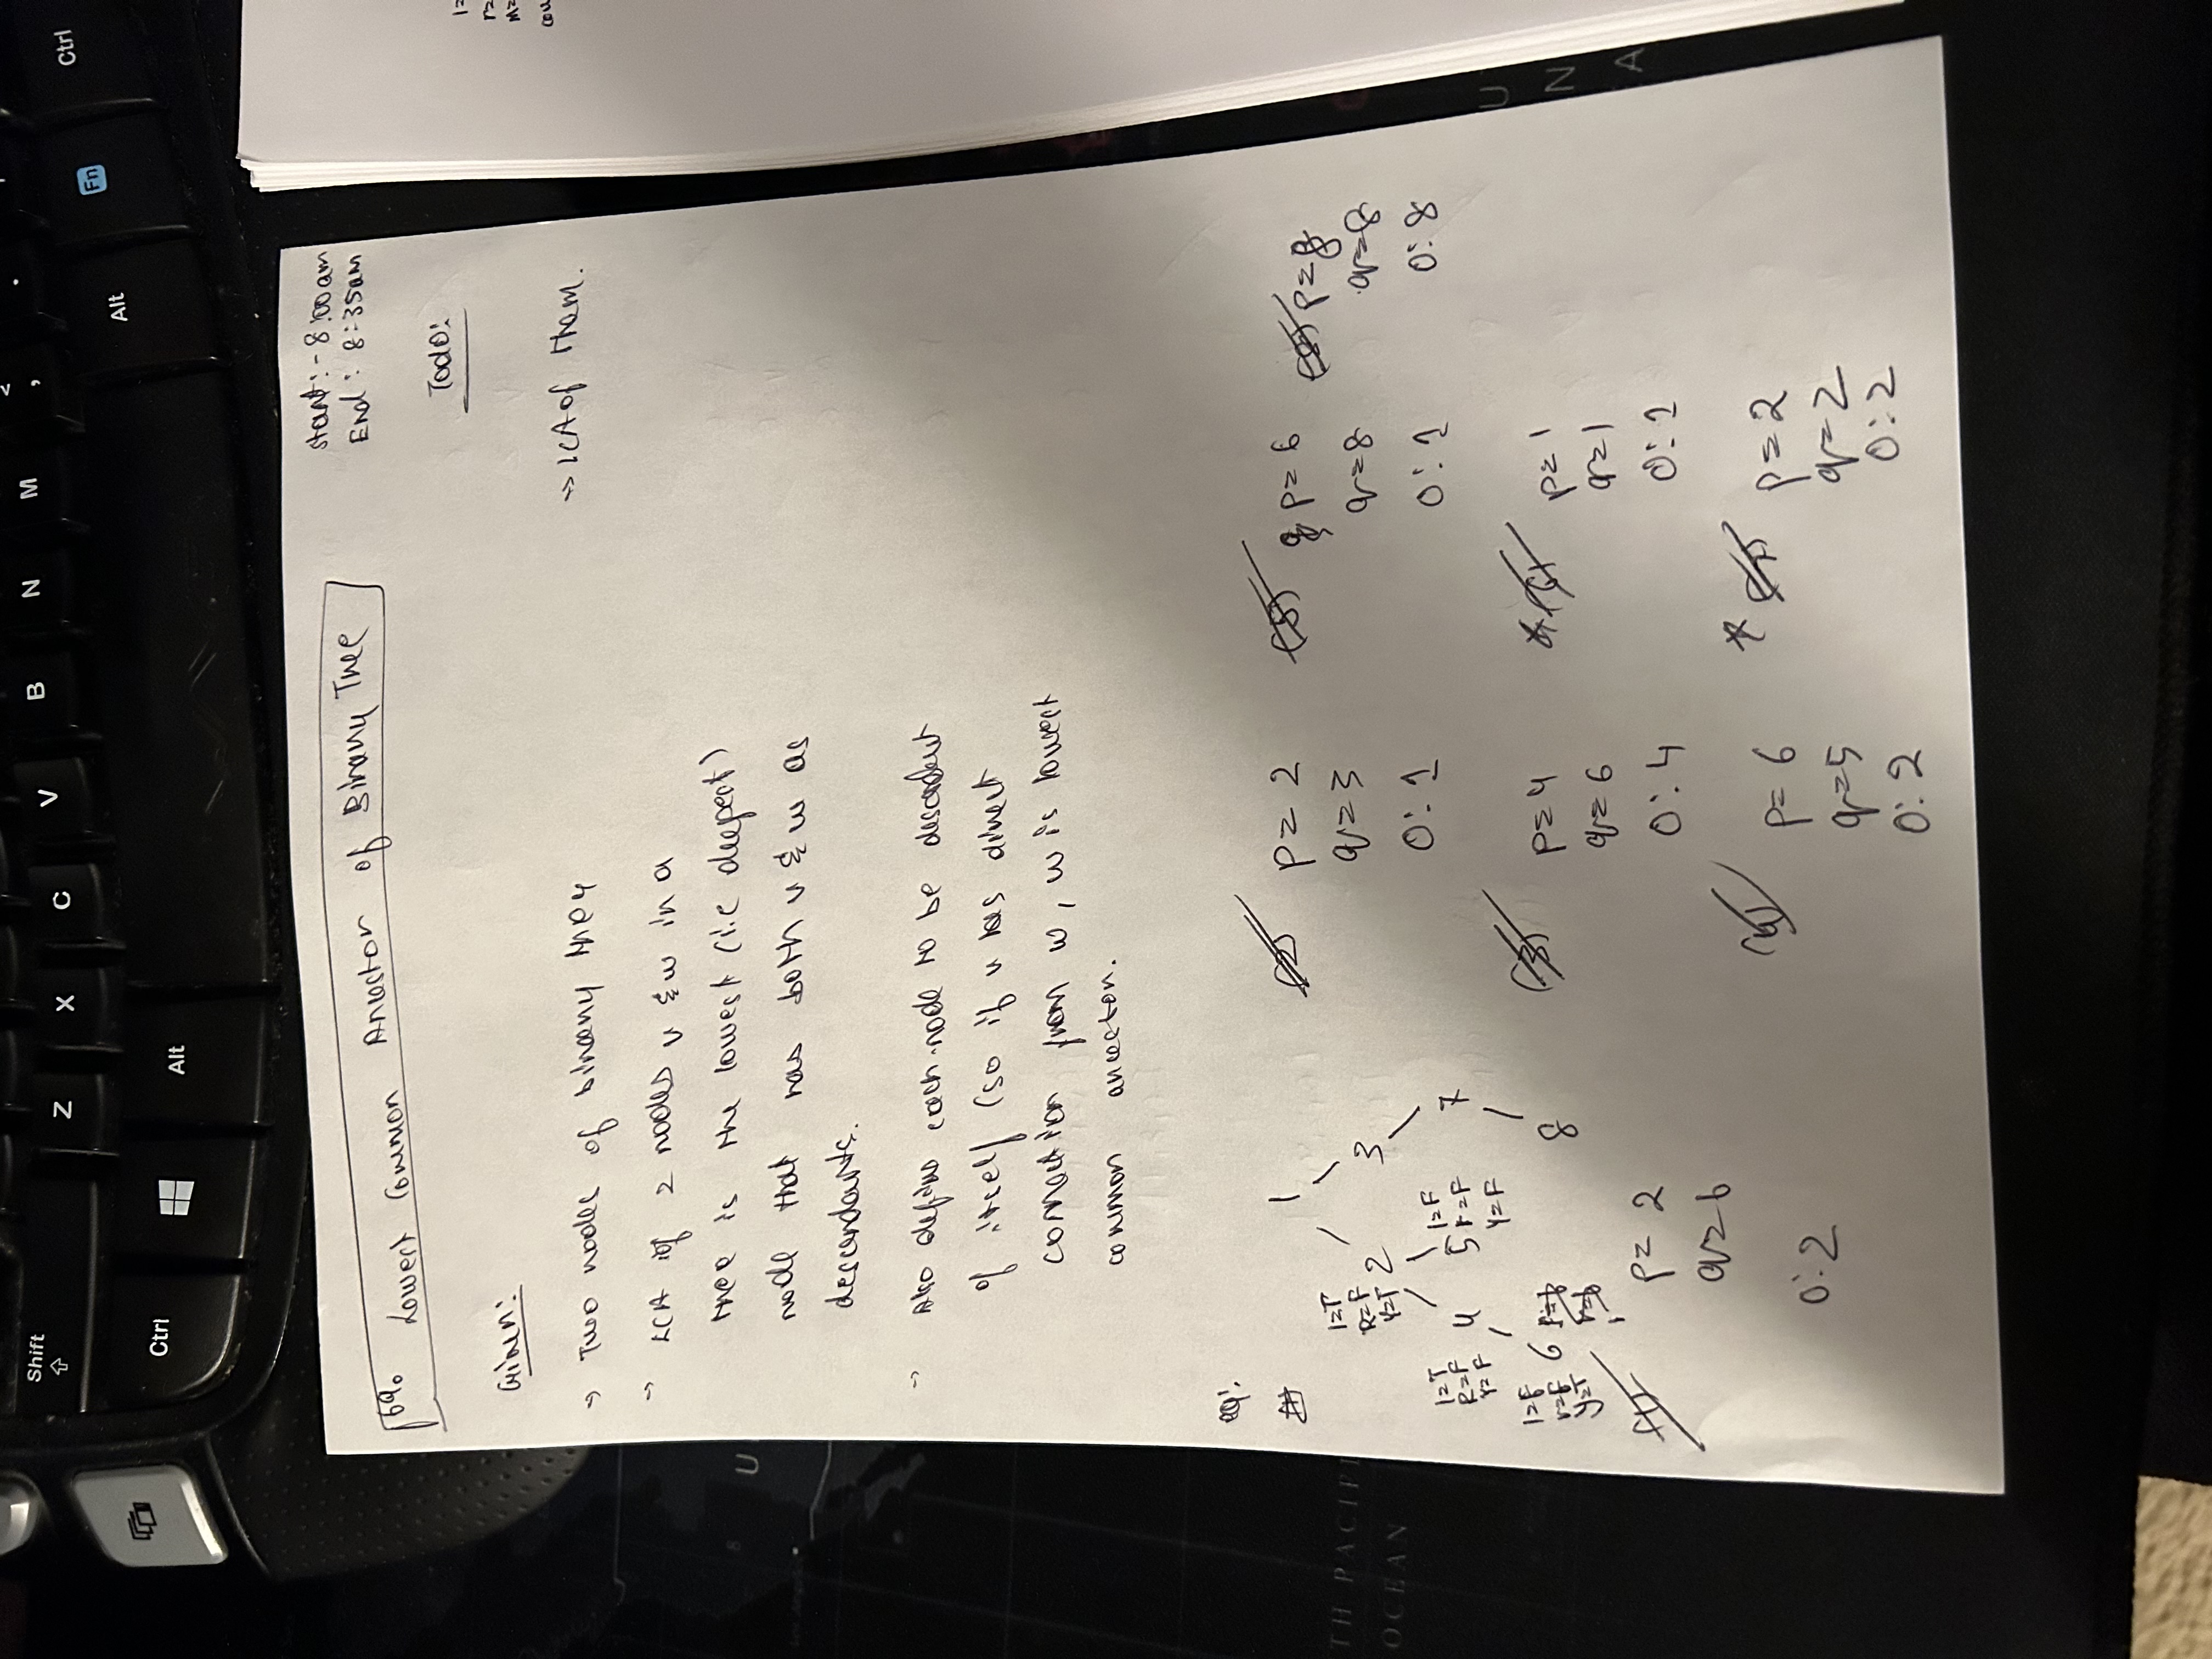 Shift
Z X C V B N M < ,
Ctrl Alt Alt Fn Ctrl
start:- 8:00am
End: 8:35am
69. Lowest Common Ancestor of Binary Tree
Todo:
Given:
→ Two nodes of binary tree
→ LCA of them.
→ LCA of 2 nodes v & w in a
tree is the lowest (i.e deepest)
node that has both v & w as
descendants.
→ Also defines each node to be descendent
of itself (so if v has direct
connection from w, w is lowest
common ancestor.
eg:
1
2 3
4 5 7
6 8
l=T
R=F
Y=T
l=T
R=F
Y=F
l=F
r=F
Y=F
l=F
r=F
Y=T
(1)
p= 2
q= 6
O: 2
(2)
p= 2
q= 3
O: 1
(3)
p= 4
q= 6
O: 4
(4)
p= 6
q= 5
O: 2
(5)
p= 6
q= 8
O: 1
(6)
p= 1
q= 1
O: 1
(7)
p= 2
q= 2
O: 2
p= 8
q= 8
O: 8
l=
r=
m=
cou
U
TH PACIFI
OCEAN
U
N
A